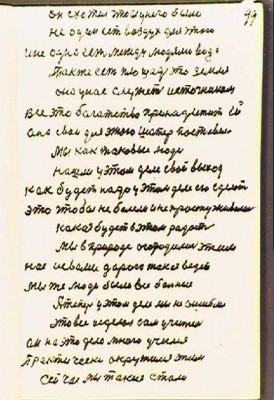 он схотел этого у него было
99
не один ест воздух для этого
и не одна ест между людями вода
Также ест площадь это земля
она у нас служит источником
Все это богатство принадлежит ей
она свои для этого шатер поставил
Мы как таковые люди
нашли у этом деле свой выход
как будет надо у этом деле его сделать
это чтобы не болели и не простуживались
какая будет в этом радость
мы в природе огородили этим
нас с вами дорога такая ведет
мы же люди были все больные
А теперь у этом деле мы не ошиблись
это все сделал сам учитель
он на это дело много учился
практически окружился этим
сейчас мы такие стали